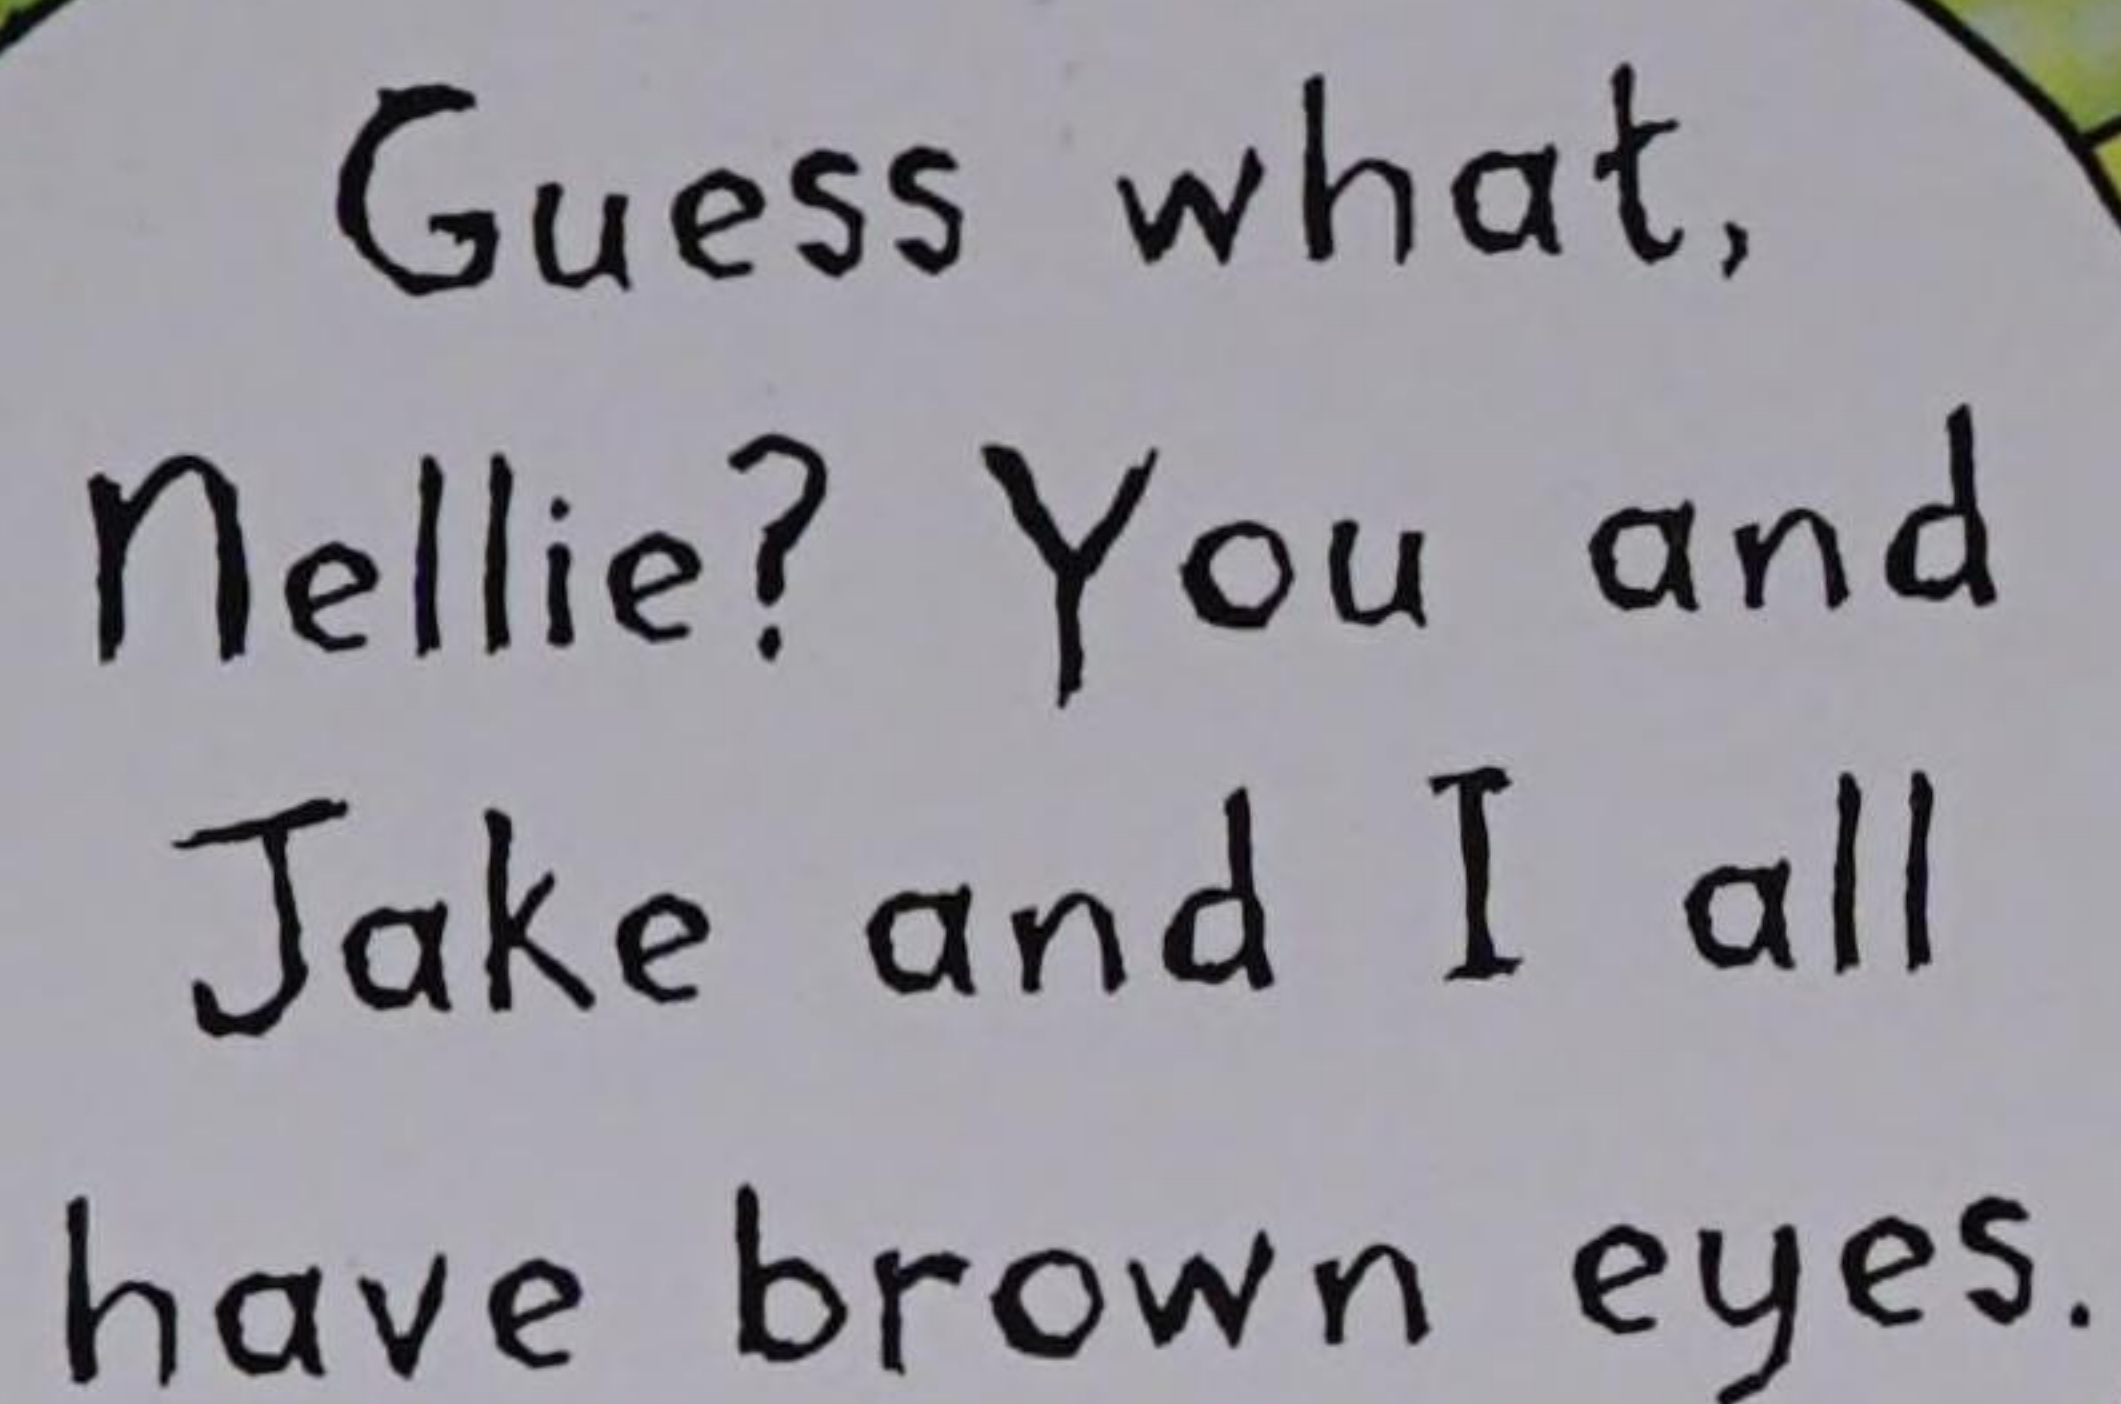 Guess what,
Nellie? You and
Jake and I all
have brown eyes.